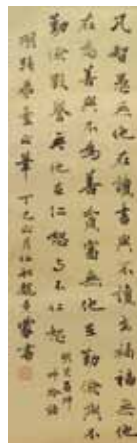 凡智愚無他在讀書與不讀書禍福無他
在為善與不為善貧富無他在勤儉與不
勤儉毀譽無他在仁恕与不仁恕 明呂坤
呻吟語
丁巳
書